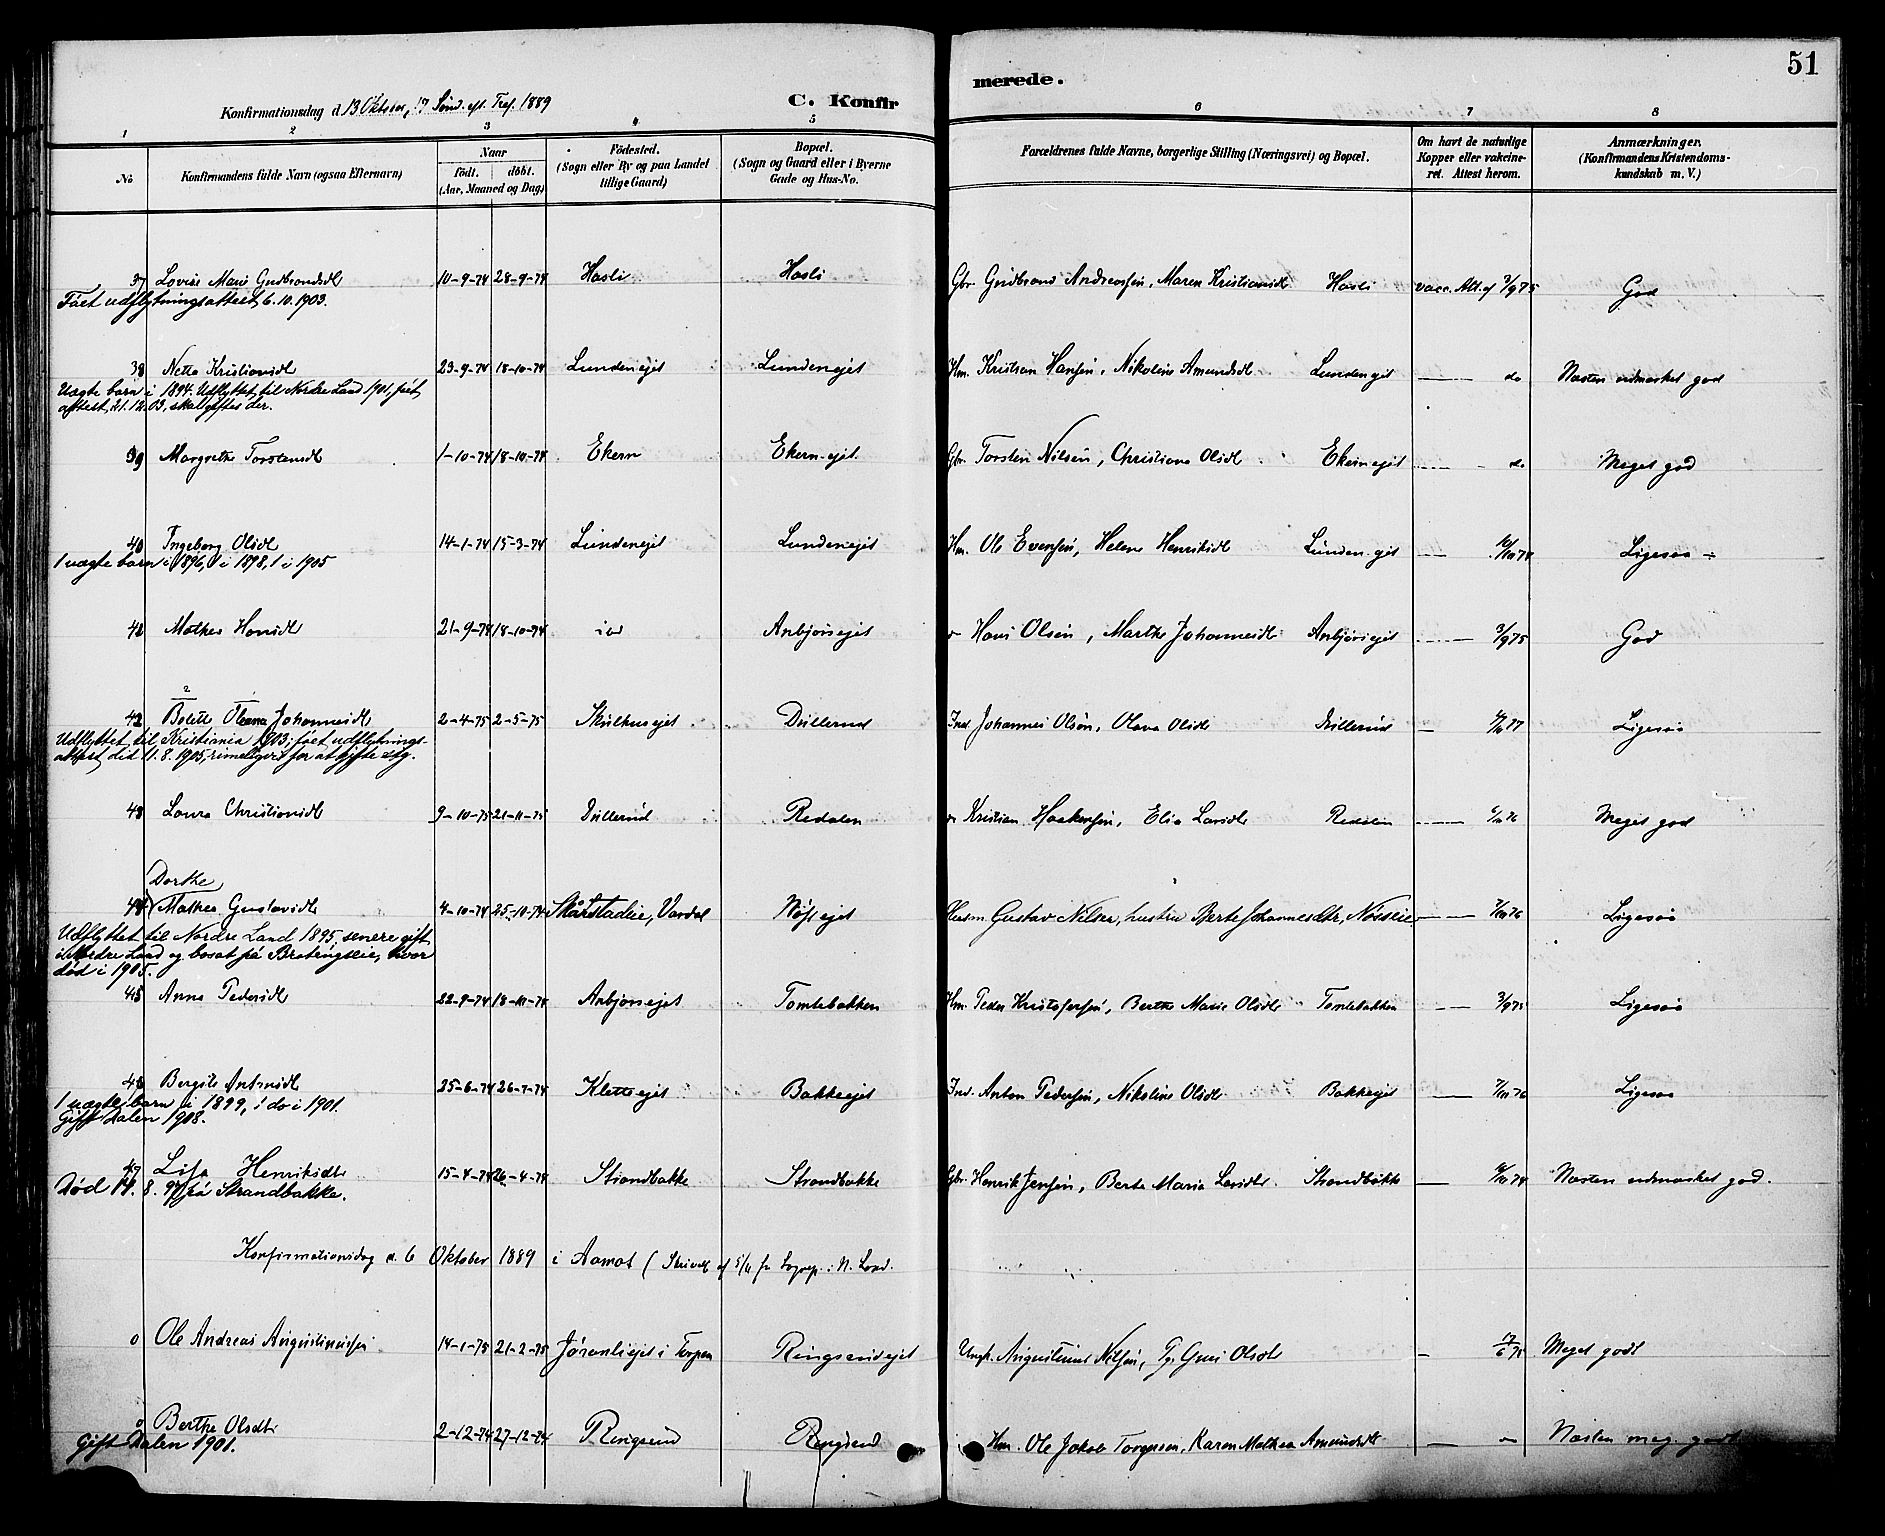 51
Konfirmationsdag d. 13 Oktober, 17 Sønd. eft. Tref. 1889 C. Konfirmerede.
1 2 3 4 5 6 7 8
No Konfirmandens fulde Navn (ogsaa Efternavn) Naar født. døbt. (Aar, Maaned og Dag) Fødested. (Sogn eller By og paa Landet tillige Gaard) Bopæl. (Sogn og Gaard eller i Byerne Gade og Hus-No. Forældrenes fulde Navne, borgerlige Stilling (Næringsvei) og Bopæl. Om havt de naturlige Kopper eller vakcineret. Attest herom. Anmærkninger. (Konfirmandens Kristendomskundskab m. V.)
37 Lovise Marie Gudbrandsdt 10-9-74 28-9-74 Hasli Hasli Gbr. Gudbrand Andreassen, Maren Kristiansdt Hasli vacc. Att. af 3/9 75 God
Fået udflytningsattest 6.10.1903.
38 Netta Kristiansdt 23-9-74 18-10-74 Lundenejet Lundenejet Hm. Kristian Hansen, Nikoline Amundsdt Lundenejet — do Næsten udmærket god
Uægte barn i 1894. Udflyttet til Nordre Land 1901, fået
attest 21.12.03, skal giftes der.
39 Margrethe Torstensdt 1-10-74 18-10-74 Ekern Ekernejet Gbr. Torsten Nilsen, Christiana Olsdt Ekernejet — do Meget god
40 Ingeborg Olsdt 14-1-74 15-3-74 Lundenejet Lundenejet Hm. Ole Evensen, Helene Henriksdt Lundenejet — Ligesaa
1 uægte barn i 1896, 1 i 1898, 1 i 1905
41 Mathea Hansdt 21-9-74 18-10-74 Anbjørsejet Hans Olsen, Marthe Johannesdt Anbjørsejet — 3/9 75 God
42 Bolette Oleana Johannesdt 2-4-75 2-5-75 Skulhusejet Dullerud Ind. Johannes Olsen, Olava Olsdt Dullerud — Ligesaa
Udflyttet til Kristiania 1903; fået udflytnings-
attest did 11.8.1905, rimeligvis for at gifte sig.
43 Laura Christiansdt 9-10-75 21-11-75 Dullerud Redalen Kristian Haakensen, Elia Larsdt Redalen — Meget god
Dorthe
44 Mathea Gustavsdt 4-10-74 25-10-74 Skårstadeie, Vardal Nøssejet Husm. Gustav Nilsen, hustru Berte Johannesdtr, Nøsseie — Ligesaa
Udflyttet til Nordre Land 1895, senere gift
i Nordre Land og bosat på Bratengseie, hvor
død i 1905.
45 Anna Pedersdt 22-9-74 18-10-74 Anbjørsejet Tomtebakken Hm. Peder Kristofersen, Berthe Marie Olsdt Tomtebakken — 3/9 75 Ligesaa
46 Bergite Antonsdt 25-6-74 26-7-74 Kletteejet Bakkeejet Ind. Anton Pedersen, Nikoline Olsdt Bakkeejet — Ligesaa
1 uægte barn i 1899, 1 do i 1901.
Gift Dalen 1908.
47 Lisa Henriksdt 15-4-74 26-4-74 Strandbakke Strandbakke Gbr. Henrik Jensen, Berte Maria Larsdt Strandbakke — Næsten udmærket god.
Død 14.8.97 på Strandbakke.
Konfirmationsdag d. 6 Oktober 1889 i Aamot
0 Ole Andreas Augustinussen 14-1-75 21-2-75 Jøranliejet i Torpen Ringsendejet Ungk. Augustinus Nilsen, Pg. Guri Olsdt — Meget godt
0 Berthe Olsdtr 2-12-74 27-12-74 Ringsend Ringsend Hm. Ole Jakob Torgersen, Karen Mathea Amundsdt — Næsten meg. godt
Gift Dalen 1901.